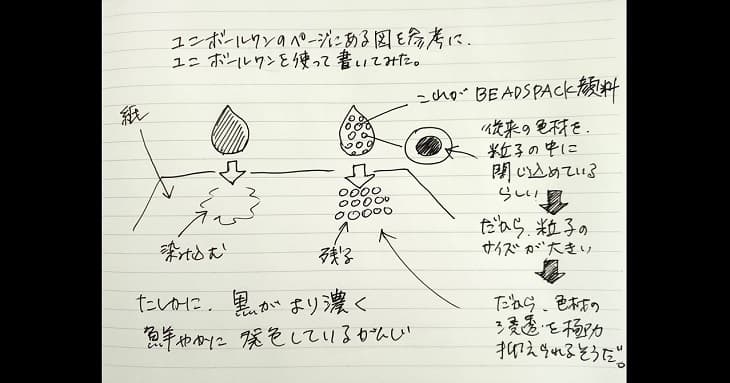 ユニボールワンのページにある図を参考に、
ユニボールワンを使って書いてみた。
紙
これが BEADSPACK顔料
従来の色材を、
粒子の中に
閉じ込めている
らしい
だから、粒子の
サイズが大きい
だから、色材の
浸透を極力
抑えられるそうだ。
染み込む
残る
たしかに、黒がより濃く
鮮やかに発色しているかんじ